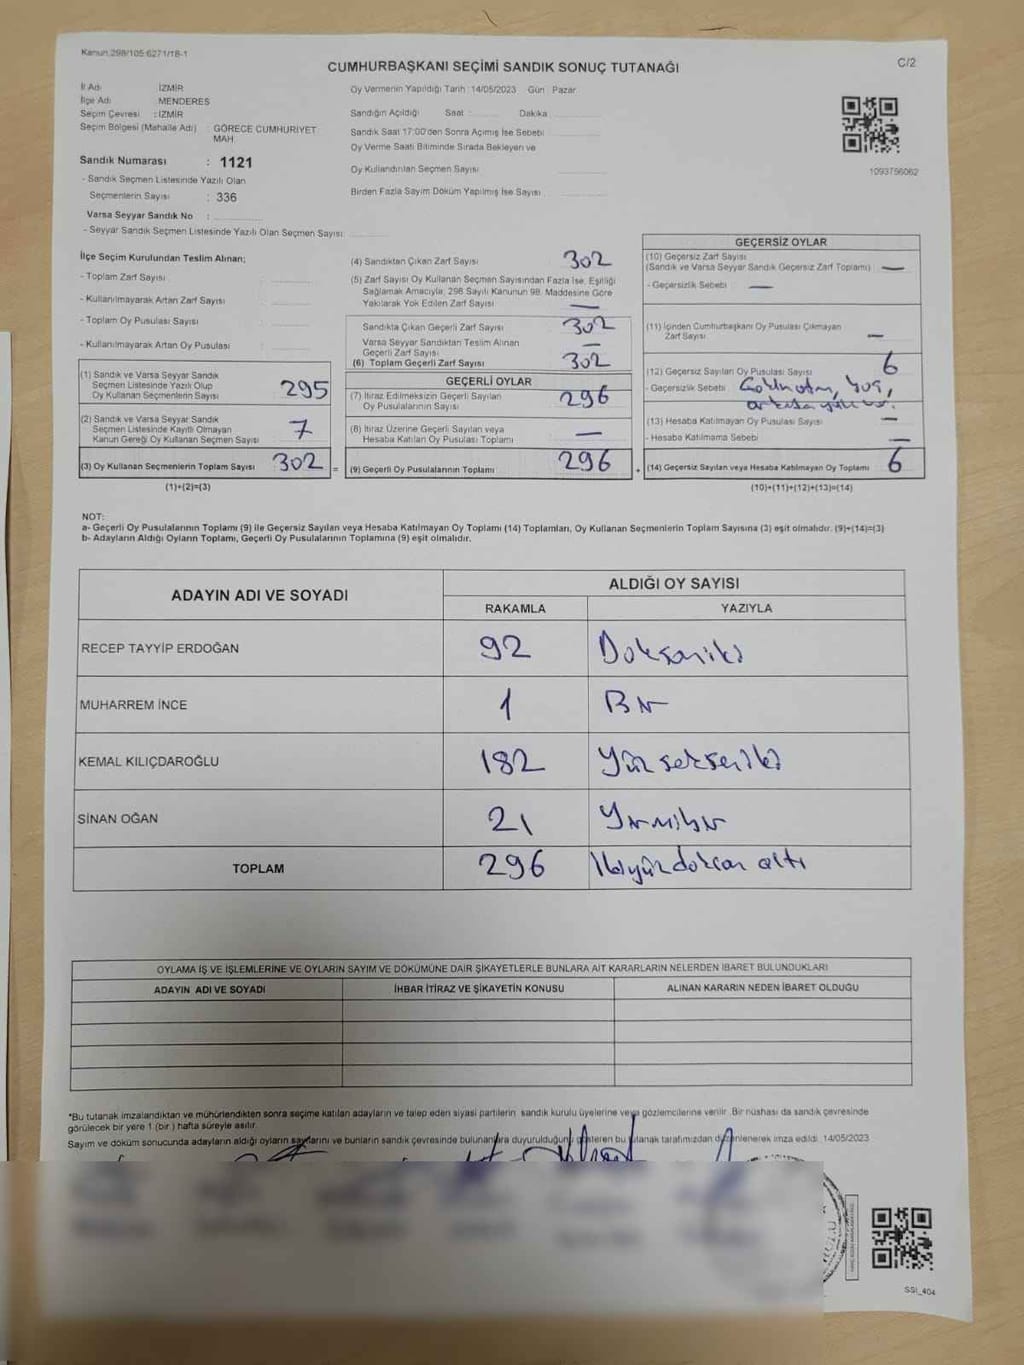 Kanun.298/105-6271/18-1
C/2
CUMHURBAŞKANI SEÇİMİ SANDIK SONUÇ TUTANAĞI
İl Adı İZMİR
İlçe Adı MENDERES
Seçim Çevresi : İZMİR
Seçim Bölgesi (Mahalle Adı) : GÖRECE CUMHURİYET
MAH
Sandık Numarası : 1121
- Sandık Seçmen Listesinde Yazılı Olan
Seçmenlerin Sayısı : 336
Varsa Seyyar Sandık No :
- Seyyar Sandık Seçmen Listesinde Yazılı Olan Seçmen Sayısı:
Oy Vermenin Yapıldığı Tarih :14/05/2023 Gün : Pazar
Sandığın Açıldığı Saat : Dakika
Sandık Saat 17:00'den Sonra Açılmış İse Sebebi
Oy Verme Saati Bitiminde Sırada Bekleyen ve
Oy Kullandırılan Seçmen Sayısı
Birden Fazla Sayım Döküm Yapılmış İse Sayısı
1093756062
İlçe Seçim Kurulundan Teslim Alınan;
- Toplam Zarf Sayısı
- Kullanılmayarak Artan Zarf Sayısı
- Toplam Oy Pusulası Sayısı
- Kullanılmayarak Artan Oy Pusulası
(1) Sandık ve Varsa Seyyar Sandık
Seçmen Listesinde Yazılı Olup
Oy Kullanan Seçmenlerin Sayısı 295
(2) Sandık ve Varsa Seyyar Sandık
Seçmen Listesinde Kayıtlı Olmayan
Kanun Gereği Oy Kullanan Seçmen Sayısı 7
(3) Oy Kullanan Seçmenlerin Toplam Sayısı 302 =
(1)+(2)=(3)
(4) Sandıktan Çıkan Zarf Sayısı 302
(5) Zarf Sayısı Oy Kullanan Seçmen Sayısından Fazla İse, Eşitliği
Sağlamak Amacıyla, 298 Sayılı Kanunun 98. Maddesine Göre
Yakılarak Yok Edilen Zarf Sayısı —
Sandıkta Çıkan Geçerli Zarf Sayısı 302
Varsa Seyyar Sandıktan Teslim Alınan
Geçerli Zarf Sayısı —
(6) Toplam Geçerli Zarf Sayısı 302
GEÇERLİ OYLAR
(7) İtiraz Edilmeksizin Geçerli Sayılan
Oy Pusulalarının Sayısı 296
(8) İtiraz Üzerine Geçerli Sayılan veya
Hesaba Katılan Oy Pusulası Toplamı —
(9) Geçerli Oy Pusulalarının Toplamı 296 +
GEÇERSİZ OYLAR
(10) Geçersiz Zarf Sayısı
(Sandık ve Varsa Seyyar Sandık Geçersiz Zarf Toplamı) —
- Geçersizlik Sebebi —
(11) İçinden Cumhurbaşkanı Oy Pusulası Çıkmayan
Zarf Sayısı —
(12) Geçersiz Sayılan Oy Pusulası Sayısı 6
- Geçersizlik Sebebi
(13) Hesaba Katılmayan Oy Pusulası Sayısı —
- Hesaba Katılmama Sebebi —
(14) Geçersiz Sayılan veya Hesaba Katılmayan Oy Toplamı 6
(10)+(11)+(12)+(13)=(14)
NOT:
a- Geçerli Oy Pusulalarının Toplamı (9) ile Geçersiz Sayılan veya Hesaba Katılmayan Oy Toplamı (14) Toplamları, Oy Kullanan Seçmenlerin Toplam Sayısına (3) eşit olmalıdır. (9)+(14)=(3)
b- Adayların Aldığı Oyların Toplamı, Geçerli Oy Pusulalarının Toplamına (9) eşit olmalıdır.
ADAYIN ADI VE SOYADI
ALDIĞI OY SAYISI
RAKAMLA YAZIYLA
RECEP TAYYİP ERDOĞAN 92 Doksaniki
MUHARREM İNCE 1 Bir
KEMAL KILIÇDAROĞLU 182 Yüzsekseniki
SİNAN OĞAN 21 Yirmibir
TOPLAM 296 İkiyüzdoksan altı
OYLAMA İŞ VE İŞLEMLERİNE VE OYLARIN SAYIM VE DÖKÜMÜNE DAİR ŞİKAYETLERLE BUNLARA AİT KARARLARIN NELERDEN İBARET BULUNDUKLARI
ADAYIN ADI VE SOYADI İHBAR İTİRAZ VE ŞİKAYETİN KONUSU ALINAN KARARIN NEDEN İBARET OLDUĞU
*Bu tutanak imzalandıktan ve mühürlendikten sonra seçime katılan adayların ve talep eden siyasi partilerin sandık kurulu üyelerine veya gözlemcilerine verilir .Bir nüshası da sandık çevresinde
görülecek bir yere 1 (bir ) hafta süreyle asılır.
Sayım ve döküm sonucunda adayların aldığı oyların sayılarını ve bunların sandık çevresinde bulunanlara duyurulduğunu gösteren bu tutanak tarafımızdan düzenlenerek imza edildi. 14/05/2023
SSI_404